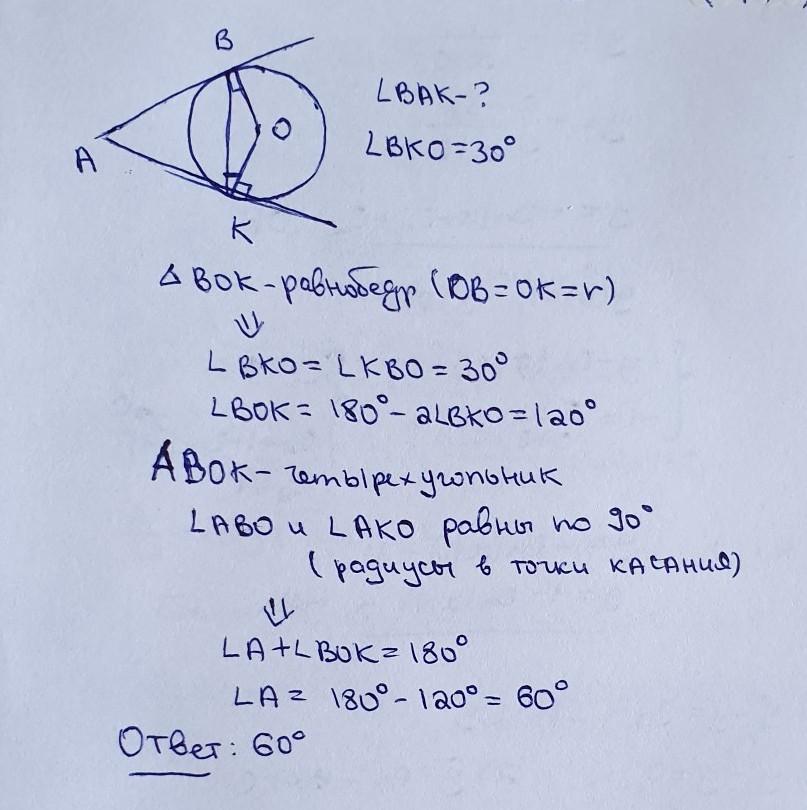 B
∠BAK-?
O
∠BKO=30°
A
K
△ BOK-равнобедр (OB=OK=r)
⇓
∠BKO=∠KBO=30°
∠BOK= 180°-2∠BKO=120°
ABOK-четырехугольник
∠ABO и ∠AKO равны по 90°
(радиусы в точки касания)
⇓
∠A+∠BOK=180°
∠A= 180°-120°= 60°
Ответ: 60°